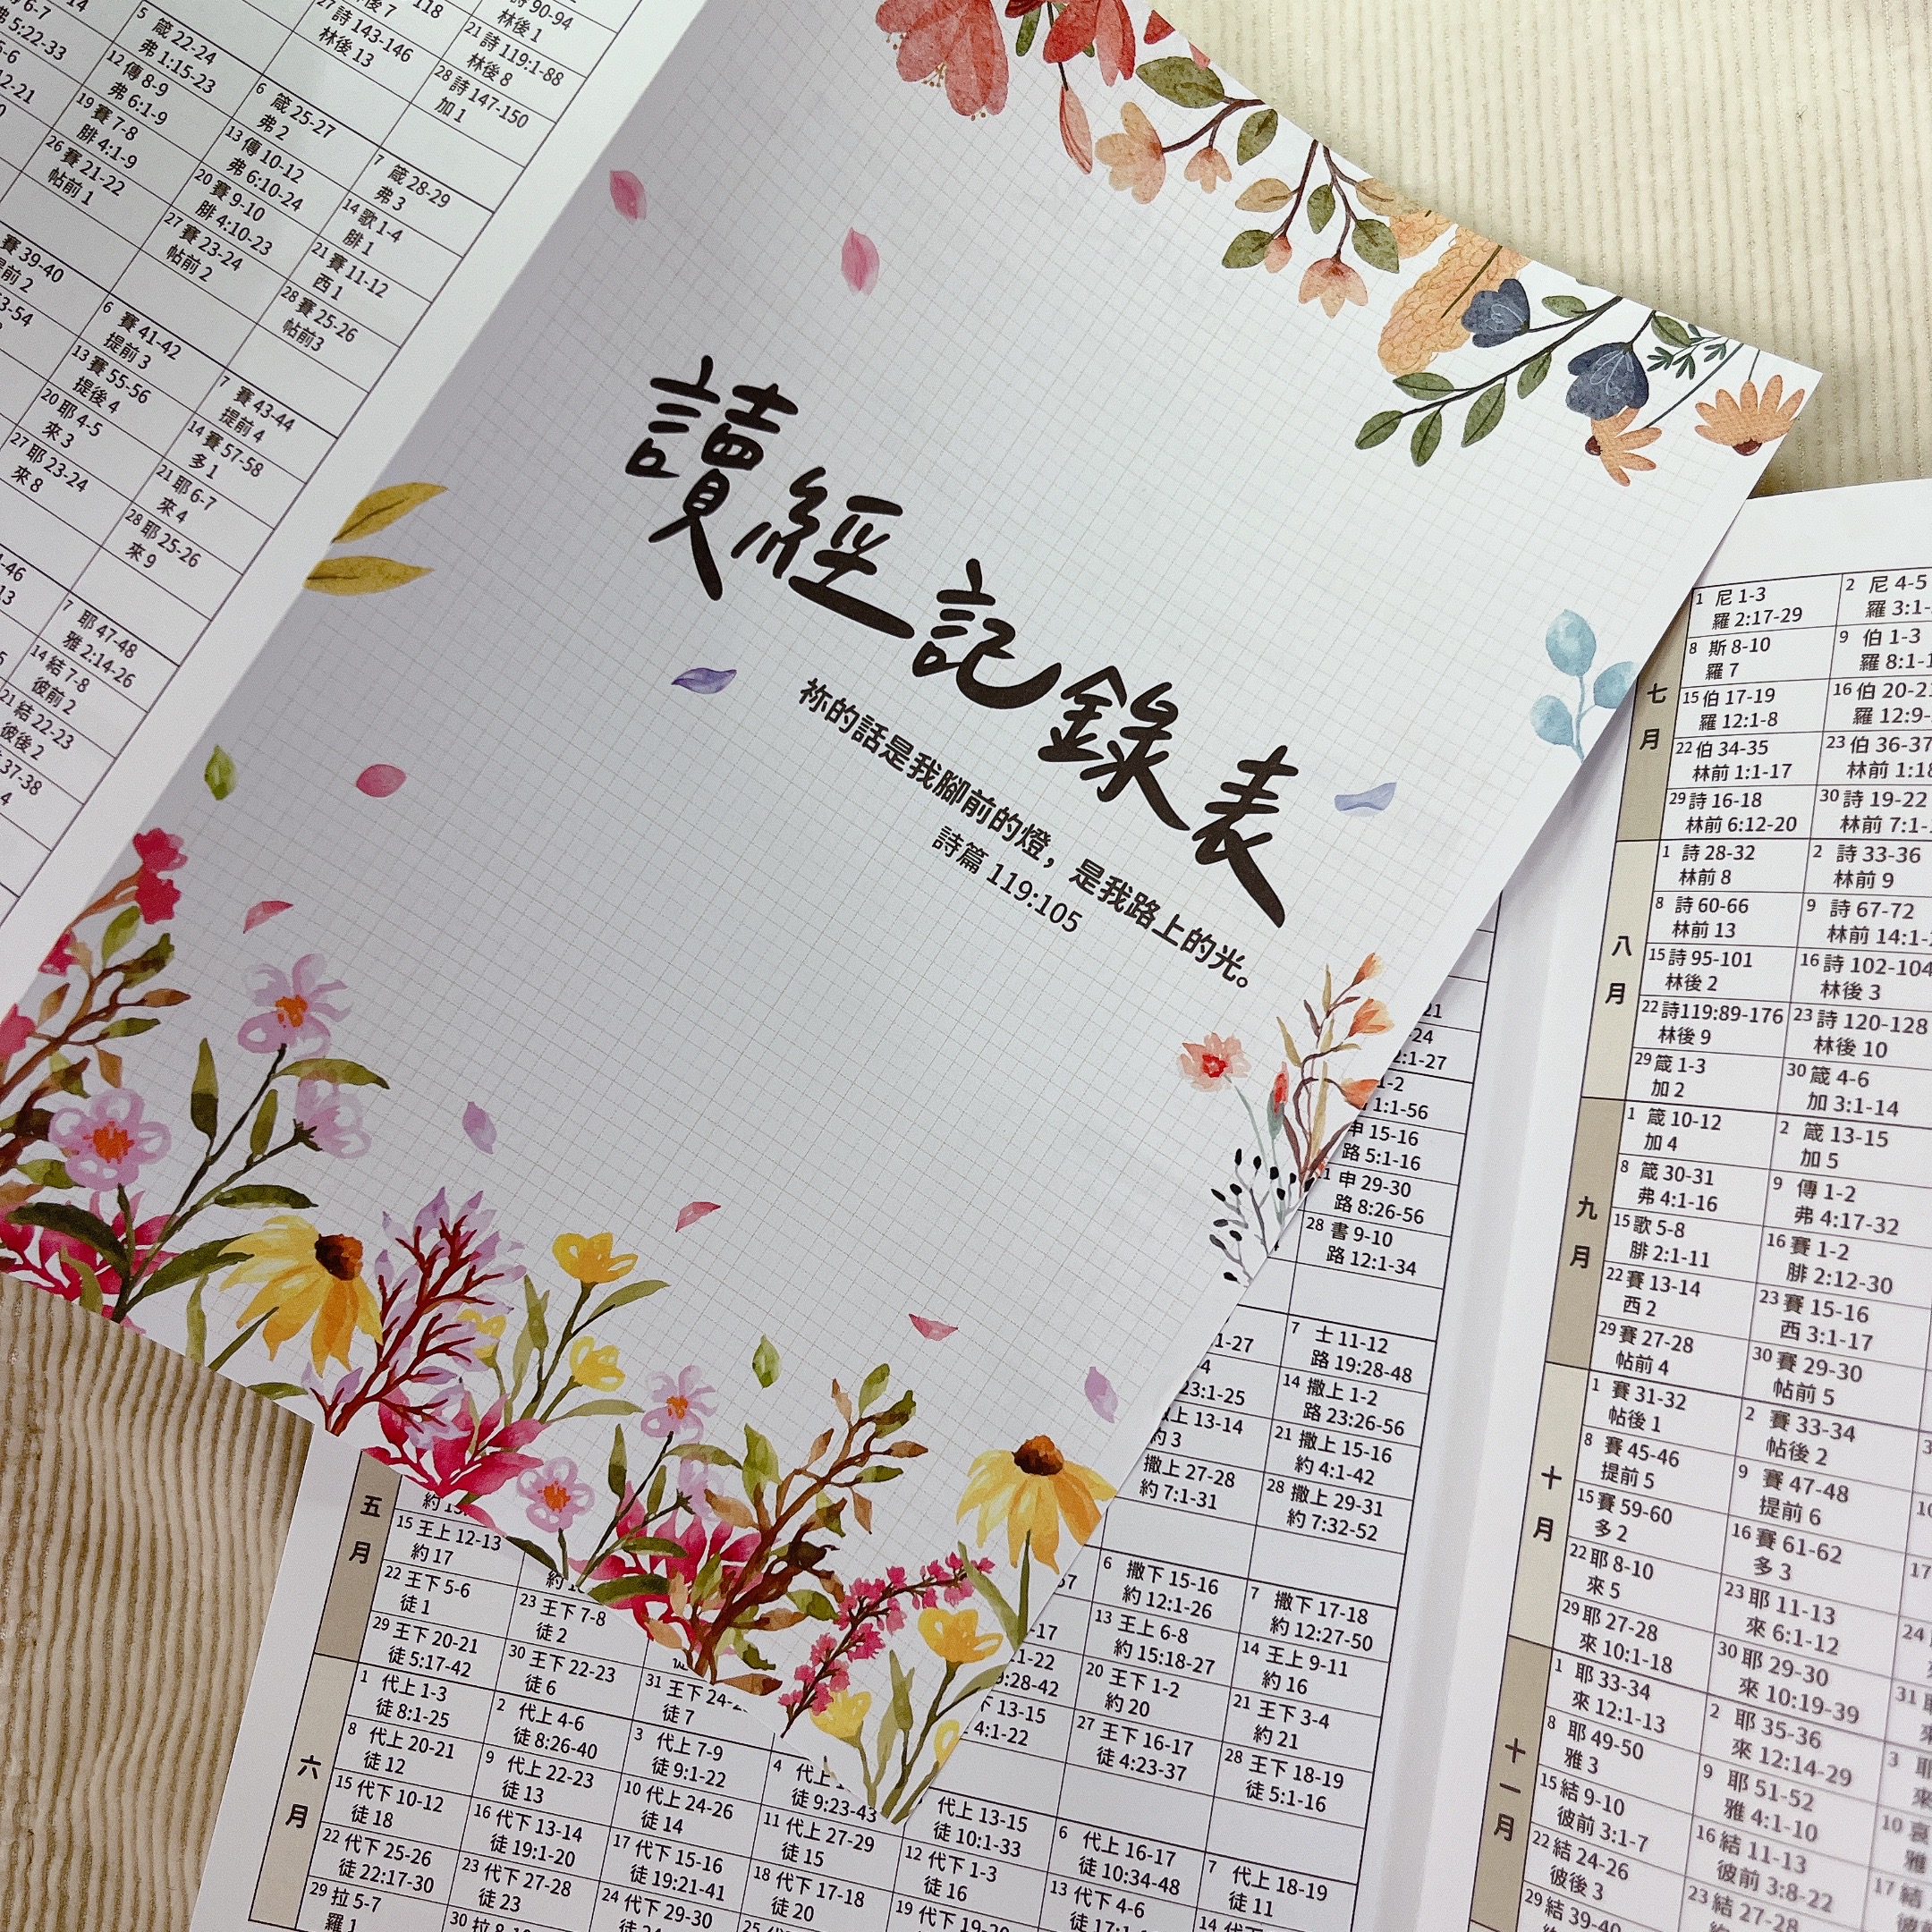 讀經記錄表
祢的話是我腳前的燈，是我路上的光。
詩篇 119:105
5 箴 22-24
弗 1:15-23
6 箴 25-27
弗 2
7 箴 28-29
弗 3
12 傳 8-9
弗 6:1-9
13 傳 10-12
弗 6:10-24
14 歌 1-4
腓 1
19 賽 7-8
腓 4:1-9
20 賽 9-10
腓 4:10-23
21 賽 11-12
西 1
26 賽 21-22
帖前 1
27 賽 23-24
帖前 2
28 賽 25-26
帖前3
27 詩 143-146
林後 13
21 詩 119:1-88
林後 8
28 詩 147-150
加 1
6 賽 41-42
提前 3
7 賽 43-44
提前 4
13 賽 55-56
提後 4
14 賽 57-58
多 1
20 耶 4-5
來 3
21 耶 6-7
來 4
27 耶 23-24
來 8
28 耶 25-26
來 9
7 耶 47-48
雅 2:14-26
14 結 7-8
彼前 2
21 結 22-23
彼後 2
七月
1 尼 1-3
羅 2:17-29
2 尼 4-5
8 斯 8-10
羅 7
9 伯 1-3
15 伯 17-19
羅 12:1-8
22 伯 34-35
林前 1:1-17
23 伯 36-37
29 詩 16-18
林前 6:12-20
30 詩 19-22
八月
1 詩 28-32
林前 8
2 詩 33-36
林前 9
8 詩 60-66
林前 13
9 詩 67-72
15 詩 95-101
林後 2
16 詩 102-104
林後 3
22 詩119:89-176
林後 9
23 詩 120-128
林後 10
29 箴 1-3
加 2
30 箴 4-6
加 3:1-14
九月
1 箴 10-12
加 4
2 箴 13-15
加 5
8 箴 30-31
弗 4:1-16
9 傳 1-2
弗 4:17-32
15 歌 5-8
腓 2:1-11
16 賽 1-2
腓 2:12-30
22 賽 13-14
西 2
23 賽 15-16
西 3:1-17
29 賽 27-28
帖前 4
30 賽 29-30
帖前 5
十月
1 賽 31-32
帖後 1
2 賽 33-34
帖後 2
8 賽 45-46
提前 5
9 賽 47-48
提前 6
15 賽 59-60
多 2
16 賽 61-62
多 3
22 耶 8-10
來 5
23 耶 11-13
來 6:1-12
29 耶 27-28
來 10:1-18
30 耶 29-30
來 10:19-39
十一月
1 耶 33-34
來 12:1-13
2 耶 35-36
來 12:14-29
8 耶 49-50
雅 3
9 耶 51-52
雅 4:1-10
15 結 9-10
彼前 3:1-7
16 結 11-13
彼前 3:8-22
22 結 24-26
彼後 3
23 結 27-28
29 結 39-40
申 15-16
路 5:1-16
申 29-30
路 8:26-56
28 書 9-10
路 12:1-34
7 士 11-12
路 19:28-48
14 撒上 1-2
路 23:26-56
21 撒上 15-16
約 4:1-42
撒上 27-28
約 7:1-31
28 撒上 29-31
約 7:32-52
五月
15 王上 12-13
約 17
22 王下 5-6
徒 1
23 王下 7-8
徒 2
29 王下 20-21
徒 5:17-42
30 王下 22-23
徒 6
31 王下 24-
徒 7
6 撒下 15-16
約 12:1-26
7 撒下 17-18
約 12:27-50
13 王上 6-8
約 15:18-27
14 王上 9-11
約 16
20 王下 1-2
約 20
21 王下 3-4
約 21
27 王下 16-17
徒 4:23-37
28 王下 18-19
徒 5:1-16
六月
1 代上 1-3
徒 8:1-25
2 代上 4-6
徒 8:26-40
3 代上 7-9
徒 9:1-22
4 代上
徒 9:23-43
代上 13-15
徒 10:1-33
6 代上 16-17
徒 10:34-48
7 代上 18-19
徒 11
8 代上 20-21
徒 12
9 代上 22-23
徒 13
10 代上 24-26
徒 14
11 代上 27-29
徒 15
12 代下 1-3
徒 16
13 代下 4-6
15 代下 10-12
徒 18
16 代下 13-14
徒 19:1-20
17 代下 15-16
徒 19:21-41
18 代下 17-18
徒 20
19 代下 19-20
22 代下 25-26
徒 22:17-30
23 代下 27-28
徒 23
24 代下 29-30
29 拉 5-7
羅 1
30 拉 8-10